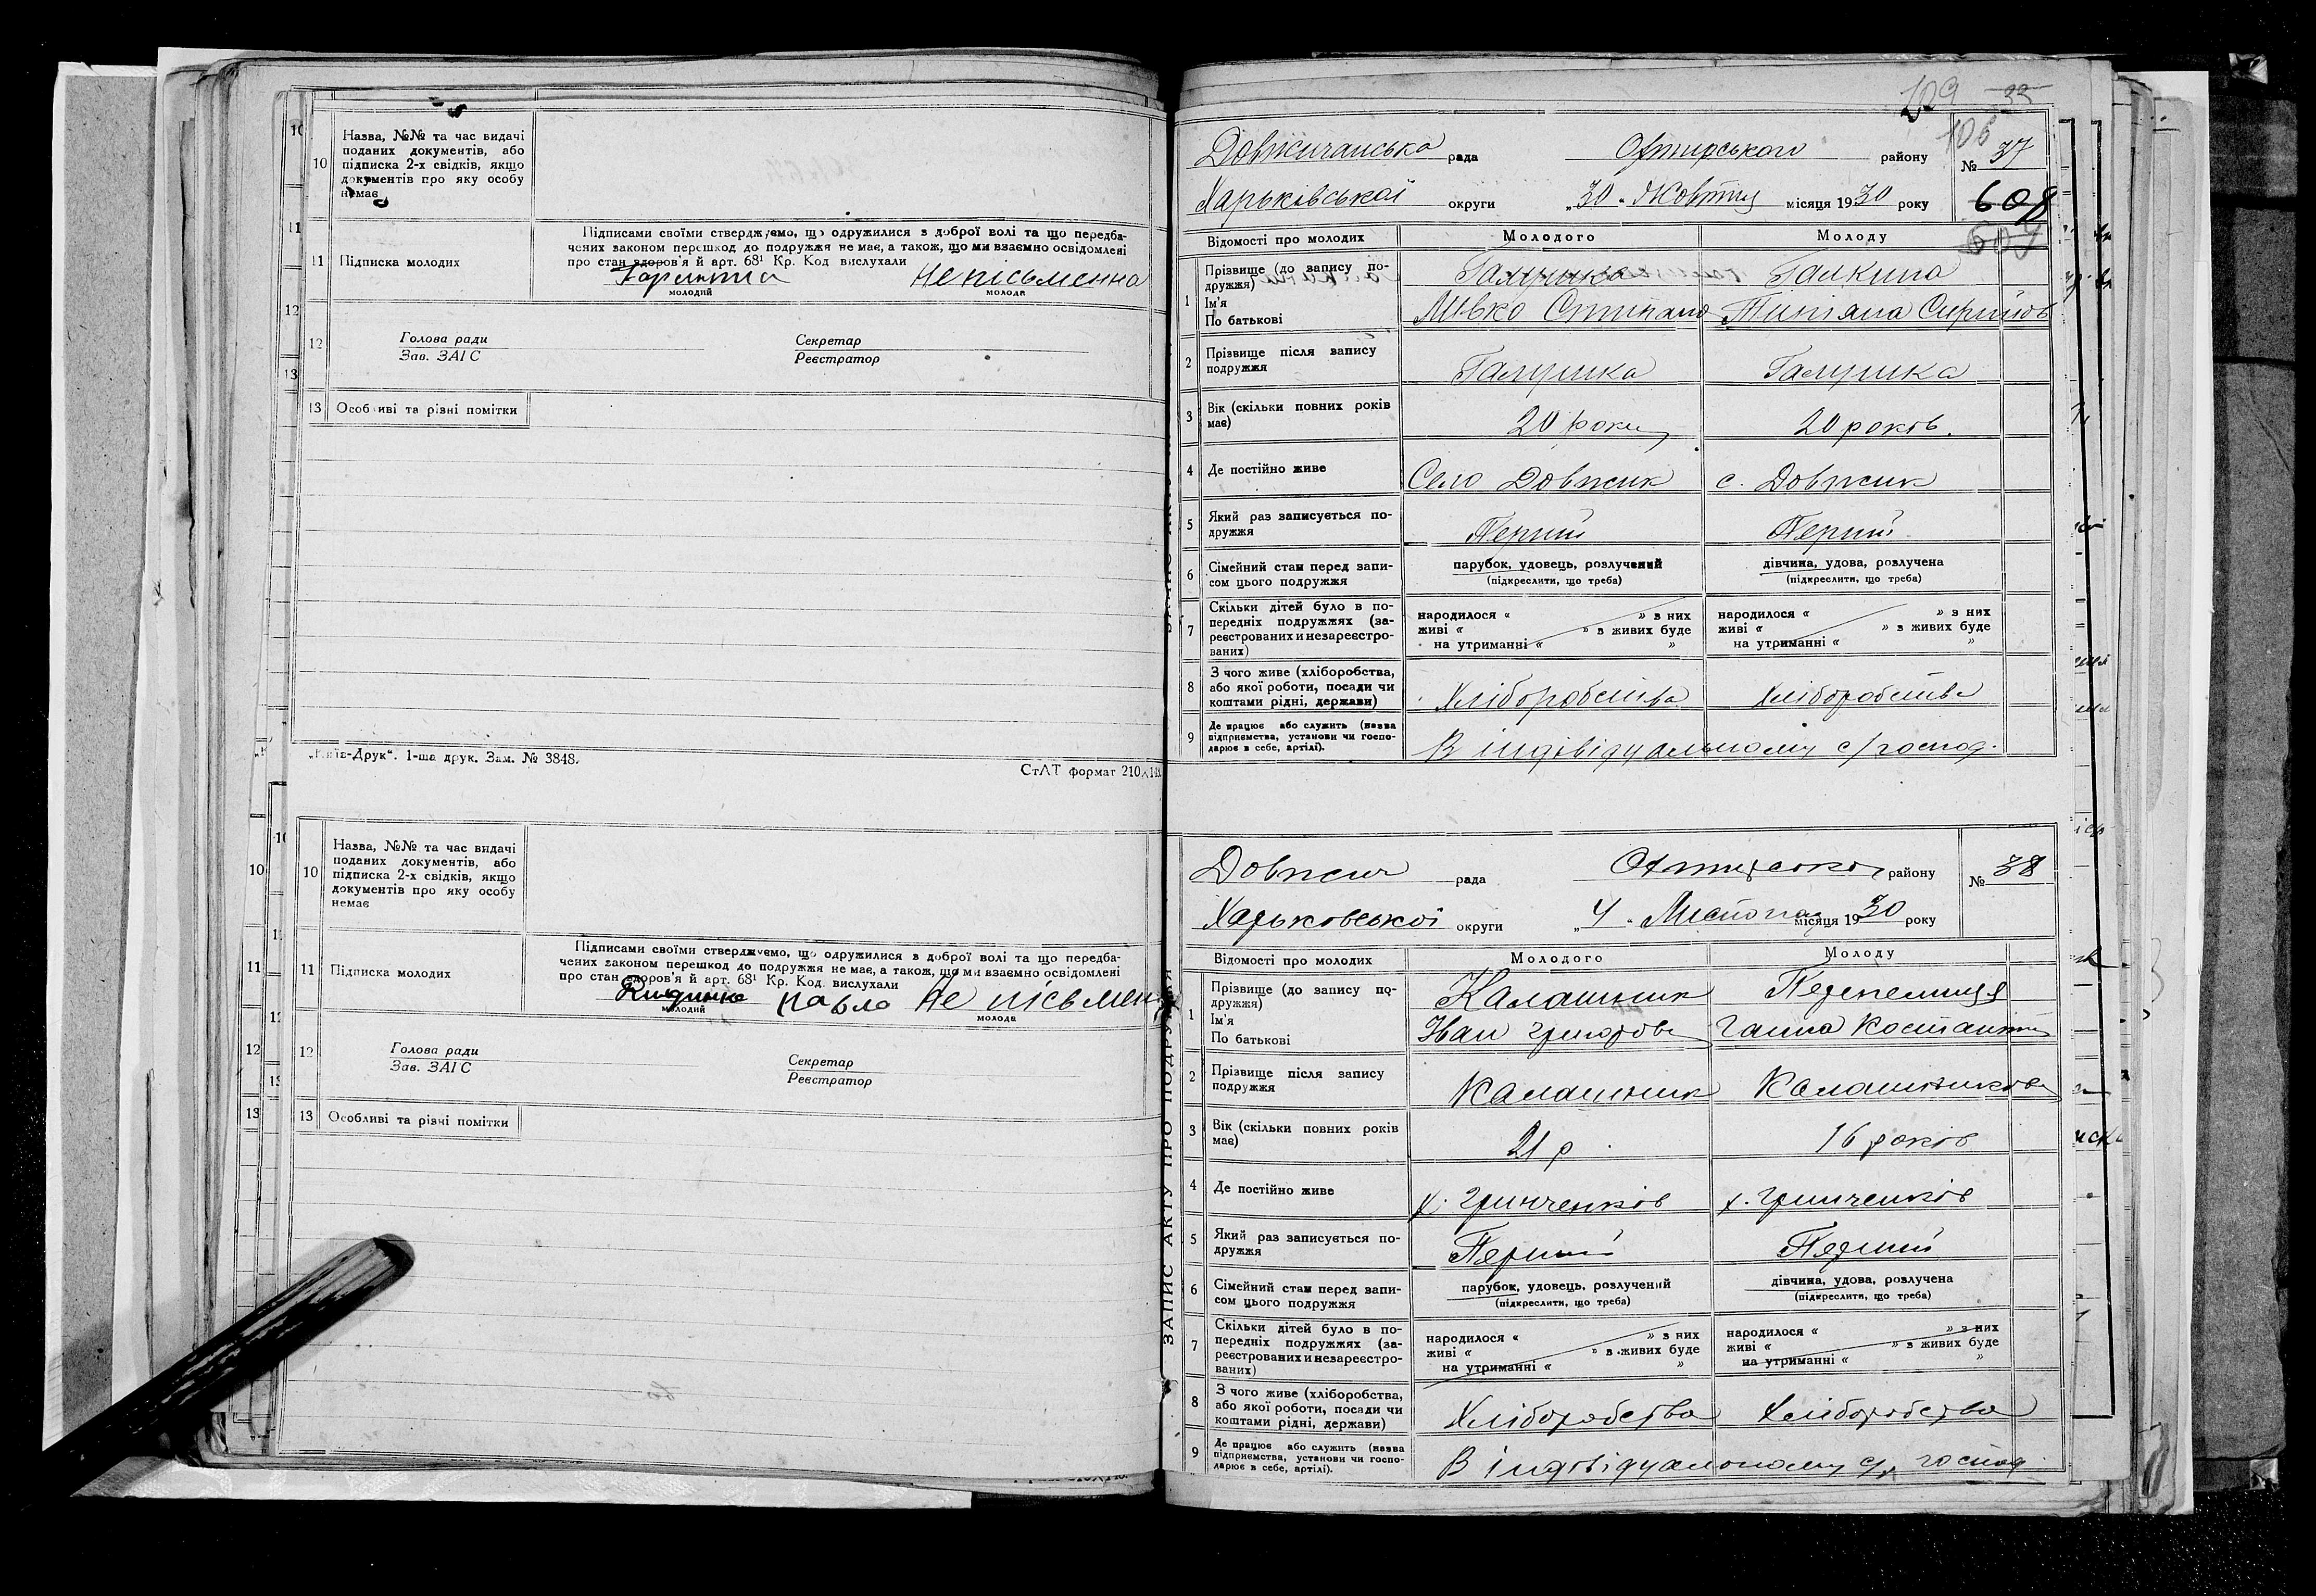 10
Назва, №№ та час видачі
поданих документів, або
підписка 2-х свідків, якщо
документів про яку особу
немає
11
Підписка молодих
Підписами своїми стверджуємо, що одружилися з доброї волі та що передба-
чених законом перешкод до подружжя не має, а також, що ми взаємно освідомлені
про стан здоров'я й арт. 68¹ Кр. Код вислухали
Не пісьменна
молодий
молода
12
Голова ради
Зав. ЗАГС
Секретар
Реєстратор
13
Особливі та різні помітки
„Київ-Друк“. 1-ша друк. Зам. № 3848.
СтАТ формат 210×1
10
Назва, №№ та час видачі
поданих документів, або
підписка 2-х свідків, якщо
документів про яку особу
немає
11
Підписка молодих
Підписами своїми стверджуємо, що одружилися з доброї волі та що передба-
чених законом перешкод до подружжя не має, а також, що ми взаємно освідомлені
про стан здоров'я й арт. 68¹ Кр. Код. вислухали
Павло Не пісьмен
молодий
молода
12
Голова ради
Зав. ЗАГС
Секретар
Реєстратор
13
Особливі та різні помітки
ЗАПИС АКТУ ПРО ПОДРУЖЖЯ
129
33
106
Довжичанська рада Охтирського району № 37
Харьківської округи „30“ Жовтня місяця 1930 року
608
607
Відомості про молодих Молодого Молоду
1 Прізвище (до запису по-
дружжя) Галушка Галкина
Ім'я
По батькові Мівко Степано Титяна Сергійов
2 Прізвище після запису
подружжя Галушка Галушка
3 Вік (скільки повних років
має) 20 роки 20 років.
4 Де постійно живе Село Довжик с. Довжик
5 Який раз записується по-
дружжя Перший Перший
6 Сімейний стан перед запи-
сом цього подружжя
парубок, удовець, розлучений дівчина, удова, розлучена
(підкреслити, що треба) (підкреслити, що треба)
7 Скільки дітей було в по-
передніх подружжях (за-
реєстрованих и незареєстро-
ваних)
народилося « » з них народилося « » з них
живі « » з живих буде живі « » з живих буде
на утриманні « » на утриманні « »
8 З чого живе (хліборобства,
або якої роботи, посади чи
коштами рідні, держави) Хліборобства Хліборобства
9 Де працює або служить (назва
підприємства, установи чи госпо-
дарює в себе, артілі). В індівідуальному с/господ.
Довжич рада Охтирсько району № 38
Харьковської округи „4“ Листопад місяця 1930 року
Відомості про молодих Молодого Молоду
1 Прізвище (до запису по-
дружжя) Калашник Перепелиця
Ім'я
По батькові Іван Григорове Ганна Костантин
2 Прізвище після запису
подружжя Калашник Калашникова
3 Вік (скільки повних років
має) 21 р 16 років
4 Де постійно живе х. Гринченків х. Гринченків
5 Який раз записується по-
дружжя Перший Перший
6 Сімейний стан перед запи-
сом цього подружжя
парубок, удовець, розлучений дівчина, удова, розлучена
(підкреслити, що треба) (підкреслити, що треба)
7 Скільки дітей було в по-
передніх подружжях (за-
реєстрованих и незареєстро-
ваних)
народилося « » з них народилося « » з них
живі « » з живих буде живі « » з живих буде
на утриманні « » на утриманні « »
8 З чого живе (хліборобства,
або якої роботи, посади чи
коштами рідні, держави) Хліборобства Хліборобства
9 Де працює або служить (назва
підприємства, установи чи госпо-
дарює в себе, артілі). В індівідуальному с/х господ